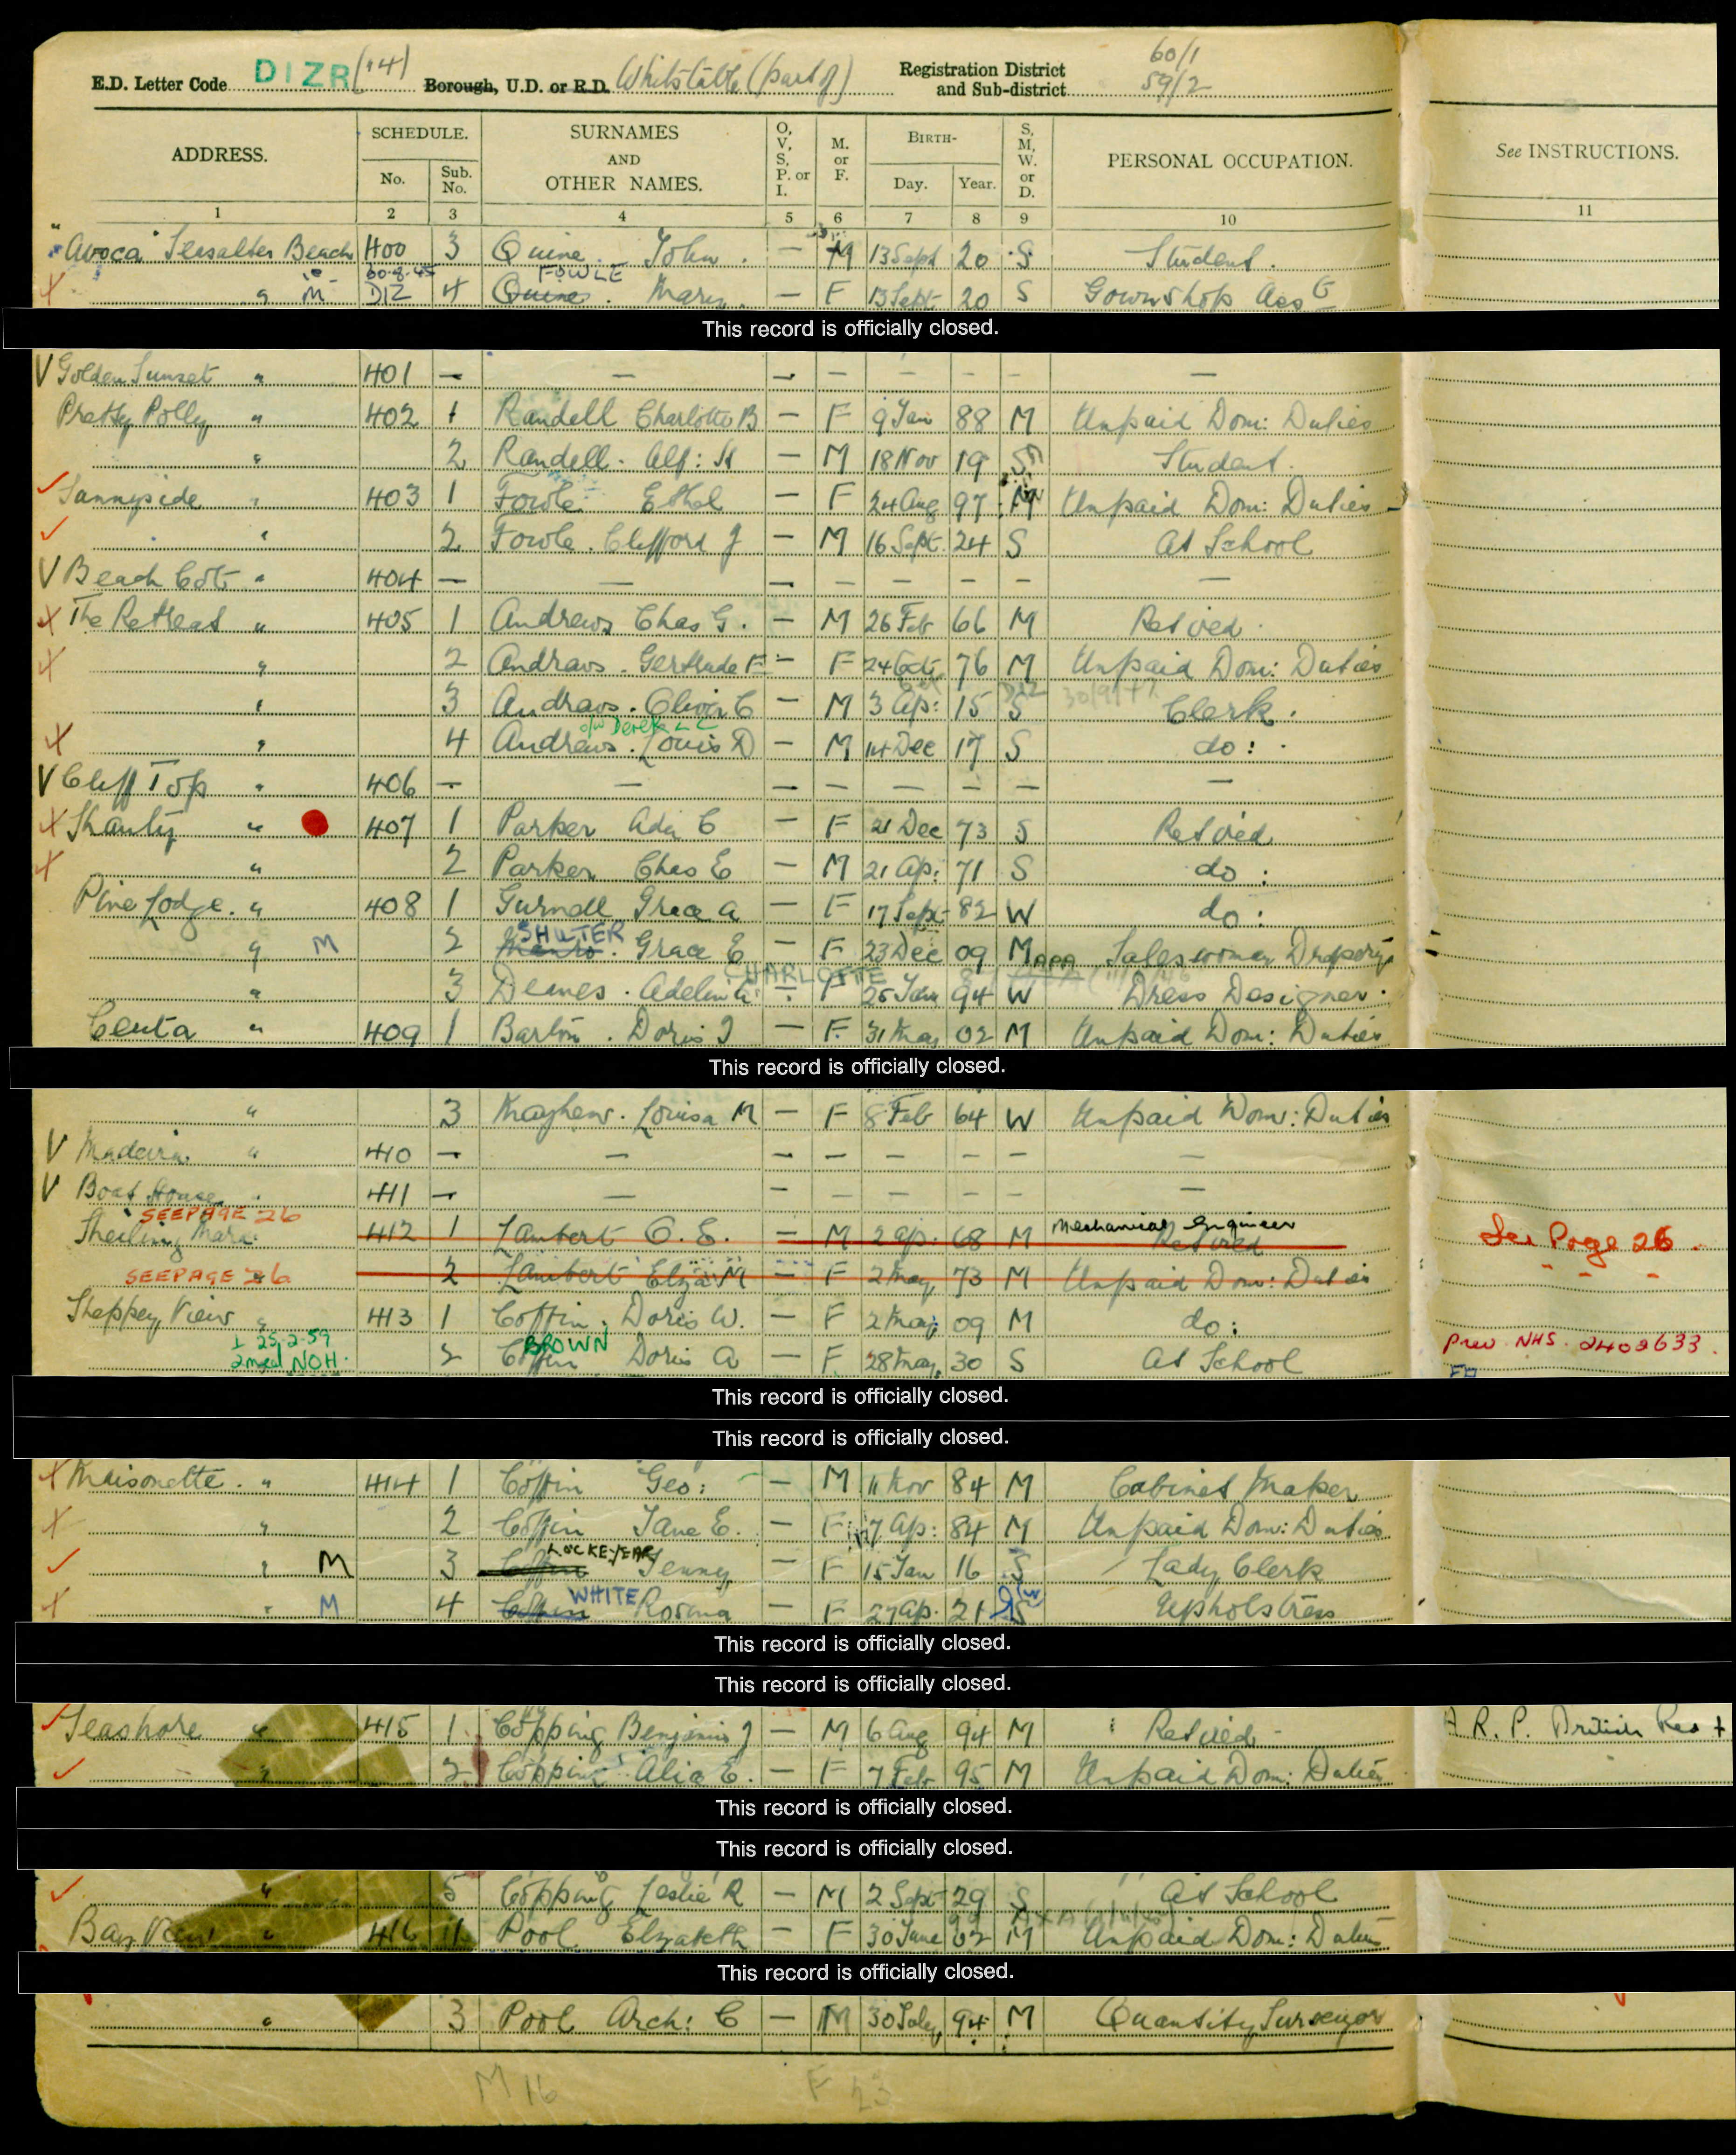 E.D. Letter Code DIZR (14) Borough, U.D. or R.D. Whitstable (part of) Registration District and Sub-district 60/1 59/2
ADDRESS. SCHEDULE. No. Sub. No. SURNAMES AND OTHER NAMES. O, V, S, P. or I. M. or F. BIRTH- Day. Year. S, M, W. or D. PERSONAL OCCUPATION. See INSTRUCTIONS.
1 2 3 4 5 6 7 8 9 10 11
"Avoca" Seasalter Beach 400 3 Quine John. — M 13 Sept 20 S Student.
FOWLE
" M DIZ 4 Quine. Mary. — F 13 Sept 20 S Gownshop Ass
This record is officially closed.
V Golden Sunset " 401 — — — — — — — —
Pretty Polly " 402 1 Randell Charlotte B — F 9 Jan 88 M Unpaid Dom: Duties
" 2 Randell. Alf: H — M 18 Nov 19 S Student.
Sunnyside " 403 1 Fowle Ethel — F 24 Aug 97 M Unpaid Dom: Duties
" 2 Fowle. Clifford J — M 16 Sept. 24 S At School
V Beach Cott " 404 — — — — — — — —
X The Retreat " 405 1 Andrews Chas G. — M 26 Feb 66 M Retired
X " 2 Andrews. Gertrude F — F 24 Oct 76 M Unpaid Dom: Duties
" 3 Andrews. Oliver C — M 3 Ap: 15 S Clerk.
o/w Derek L C
X " 4 Andrews. Louis D — M 14 Dec 17 S do:
V Cliff Top " 406 — — — — — — — —
X Shanty " 407 1 Parker Ada C — F 21 Dec 73 S Retired
X " 2 Parker Chas E — M 21 Ap: 71 S do:
Pine Lodge. " 408 1 Gurnell Grace A — F 17 Sept 82 W do:
SHUTER
" M 2 Grace E — F 23 Dec 09 M Saleswoman Drapery
CHARLOTTE
" 3 Deines. Adelin — F 25 Jan 94 W Dress Designer.
Ceuta " 409 1 Barton. Doris J — F. 31 May 02 M Unpaid Dom: Duties
This record is officially closed.
" 3 Mayhew. Louisa M — F 8 Feb 64 W Unpaid Dom: Duties
V Madeira " 410 — — — — — — — —
V Boat House " 411 — — — — — — — —
SEE PAGE 26 Mechanical Engineer
412 1 Lambert O. E. — M 2 Ap: 68 M Retired See Page 26.
SEE PAGE 26 2 Lambert Eliza M — F 2 May 73 M Unpaid Dom: Duties
Sheppey View " 413 1 Coffin. Doris W. — F 2 May 09 M do:
I 25-2-59 BROWN prev. NHS. 2402633.
NOH. 2 Coffin Doris A — F 28 May. 30 S At School
This record is officially closed.
This record is officially closed.
X Maisonette. " 414 1 Coffin Geo: — M 11 Nov 84 M Cabinet Maker
X " 2 Coffin Jane E. — F 7 Ap: 84 M Unpaid Dom: Duties
LOCKEYEAR
" M 3 Coffin Jenny — F 15 Jan 16 S Lady Clerk
WHITE
X " M 4 Coffin Rosina — F 27 Ap. 21 S Upholstress
This record is officially closed.
This record is officially closed.
Seashore " 415 1 Copping Benjamin J — M 6 Aug 94 M Retired A. R. P. British Red +
" 2 Copping Alice E. — F 7 Feb 95 M Unpaid Dom: Duties
This record is officially closed.
This record is officially closed.
" 5 Copping Leslie R — M 2 Sept 29 S At School
Bay View " 416 1 Pool Elizabeth — F 30 June 92 M Unpaid Dom: Duties
This record is officially closed.
" 3 Pool Arch: C — M 30 July 94 M Quantity Surveyor
M 16 F 23